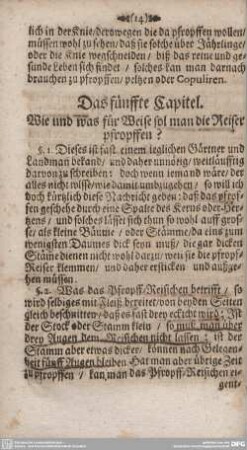 (14)
lich in der Knie/derowegen die da pfropffen wollen/
müssen wohl zu sehen/daß sie solche über Jährlinge
oder die Knie wenschneiden/ biß das reine und ge-
sunde Leben sich findet / solches kan man darnach
brauchen zu pfropffen/ pelzen oder Copuliren.
Das fünffte Capitel.
Wie und was für Weise sol man die Reiser
pfropffen?
§. 1. Dieses ist fast einem ieglichen Gärtner und
Landman bekand/ und daher unnötig/ weitläufftig
darvon zu schreiben: doch wenn iemand wäre/ der
alles nicht wisse/ wie damit umbzugehen/ so will ich
doch kürtzlich diese Nachricht geben: daß das pfropf-
fen geschehe durch eine Spalte des Kerns oder Her-
tzens/ und solches lässet sich thun so wohl auff grosse/
als kleine Bäume/ oder Stämme/ da eins zum
wenigsten Daumes dick seyn muß/ die gar dicken
Stäme dienen nicht wohl darzu/ weil sie die pfropf-
Reiser klemmen/ und daher ersticken und außge-
hen müssen.
§. 2. Was das Pfropff-Reischen betrifft/ so
wird selbiges mit Fleiß bereitet/ von beyden Seiten
gleich beschnitten/ daß es fast drey eckicht wird: Ist
der Stock oder Stamm klein / so muß man aber
drey Augen dem Reischen nicht lassen: ist der
Stamm aber etwas dicker/ können nach Gelegen-
heit fünff Augen bleiben. Hat man aber übrige Zeit
zu pfropffen / kan man das Pfropff-Reischen ei-
gent-